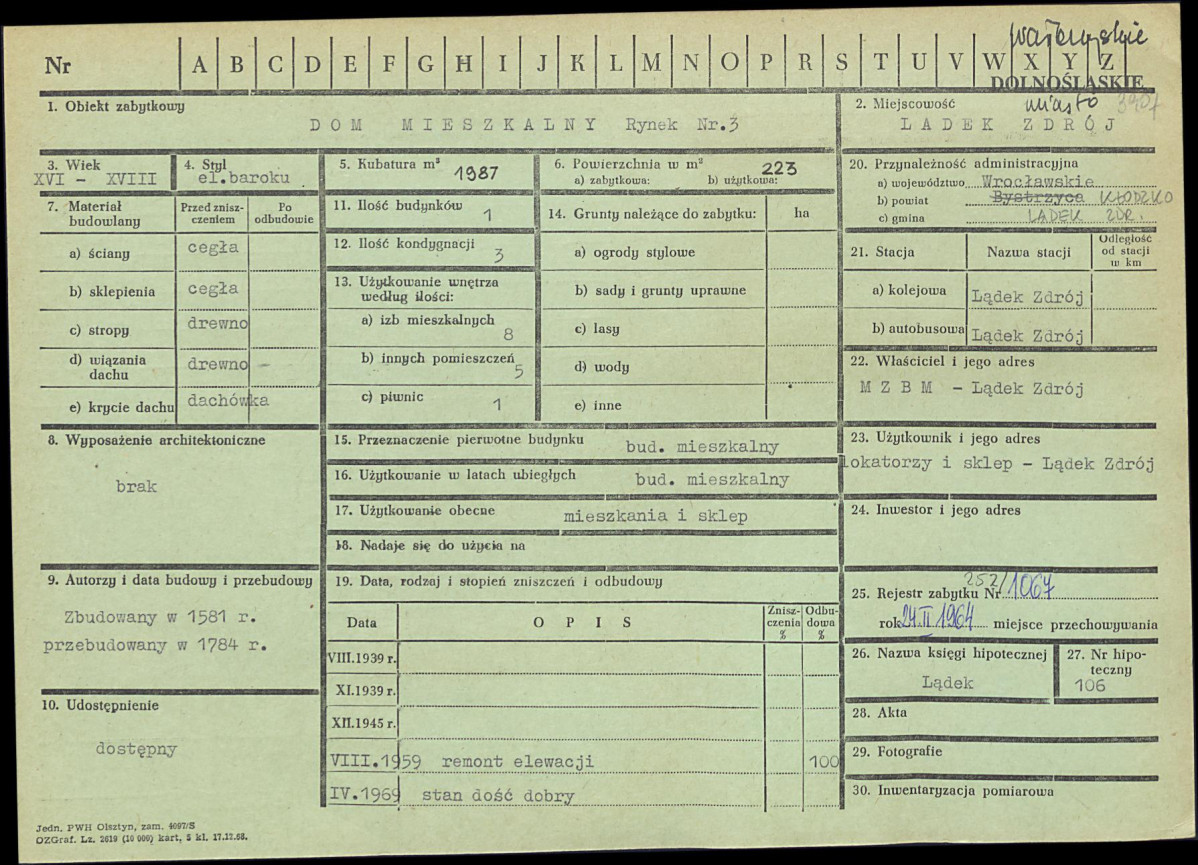 wałbrzyskie
Nr A B C D E F G H I J K L M N O P R S T U V W X Y Z
DOLNOŚLĄSKIE
1. Obiekt zabytkowy
DOM MIESZKALNY Rynek Nr.3
2. Miejscowość miasto 3907
LADEK ZDRÓJ
3. Wiek
XVI - XVIII
4. Styl
el.baroku
5. Kubatura m³ 1987
6. Powierzchnia w m² 223
a) zabytkowa: b) użytkowa:
20. Przynależność administracyjna
a) województwo Wrocławskie
b) powiat Bystrzyca KŁODZKO
c) gmina LĄDEK ZDR.
7. Materiał budowlany
Przed zniszczeniem
Po odbudowie
a) ściany cegła
b) sklepienia cegła
c) stropy drewno
d) wiązania dachu drewno -
e) krycie dachu dachówka
11. Ilość budynków 1
12. Ilość kondygnacji 3
13. Użytkowanie wnętrza według ilości:
a) izb mieszkalnych 8
b) innych pomieszczeń 5
c) piwnic 1
14. Grunty należące do zabytku: ha
a) ogrody stylowe
b) sady i grunty uprawne
c) lasy
d) wody
e) inne
21. Stacja Nazwa stacji Odległość od stacji w km
a) kolejowa Lądek Zdrój
b) autobusowa Lądek Zdrój
22. Właściciel i jego adres
M Z B M - Lądek Zdrój
8. Wyposażenie architektoniczne
brak
15. Przeznaczenie pierwotne budynku bud. mieszkalny
16. Użytkowanie w latach ubiegłych bud. mieszkalny
17. Użytkowanie obecne mieszkania i sklep
18. Nadaje się do użycia na
23. Użytkownik i jego adres
lokatorzy i sklep - Lądek Zdrój
24. Inwestor i jego adres
9. Autorzy i data budowy i przebudowy
Zbudowany w 1581 r.
przebudowany w 1784 r.
19. Data, rodzaj i stopień zniszczeń i odbudowy
Data OPIS Zniszczenia % Odbudowa %
VIII.1939 r.
XI.1939 r.
XII.1945 r.
VIII.1959 remont elewacji 100
IV.1969 stan dość dobry
25. Rejestr zabytku Nr 252/1067
rok 24.II.1964 miejsce przechowywania
26. Nazwa księgi hipotecznej
Lądek
27. Nr hipoteczny
106
10. Udostępnienie
dostępny
28. Akta
29. Fotografie
30. Inwentaryzacja pomiarowa
Jedn. PWH Olsztyn, zam. 4097/S
OZGraf. Lz. 2619 (10 000) kart. 5 kl. 17.12.68.